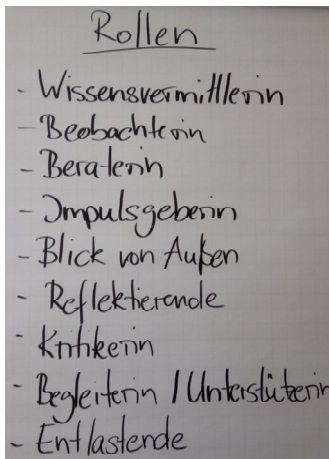 Rollen
- Wissensvermittlerin
- Beobachterin
- Beraterin
- Impulsgeberin
- Blick von Außen
- Reflektierende
- Kritikerin
- Begleiterin / Unterstützerin
- Entlastende